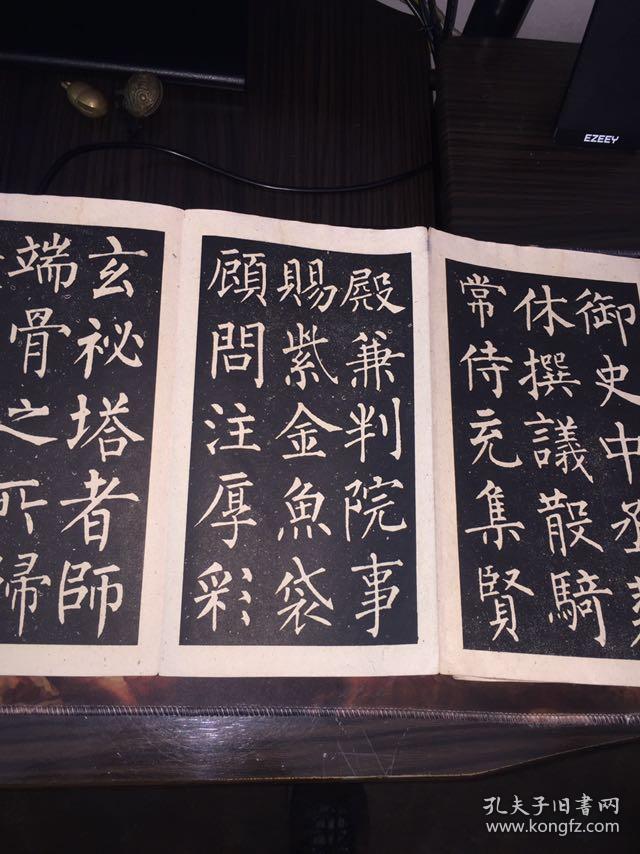 御史中丞
休撰議散騎
常侍充集賢
殿兼判院事
賜紫金魚袋
顧問注厚彩
玄祕塔者師
端骨之所歸
EZEEY
孔夫子旧书网
www.kongfz.com